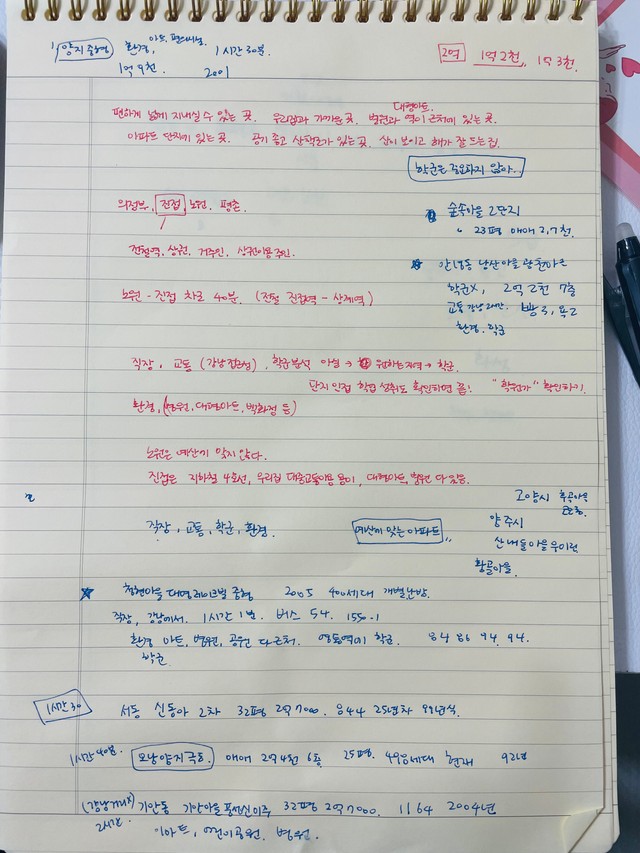 양지 환경, 마트, 편의시설 1시간 30분.
1억 9천 2001
2억 1억 2천, 1억 3천.
편하게 넓게 지내실 수 있는 곳. 우리집과 가까운 곳. 병원과 대형마트. 역이 근처에 있는 곳.
아파트 단지가 있는 곳. 공기 좋고 산책로가 있는 곳. 산이 보이고 해가 잘 드는 집.
학군은 중요하지 않아..
의정부, 진접, 노원, 평촌.
숲속마을 2단지
" 23평 매매 2.7천.
전철역, 상권, 거주인, 상권이용 주민.
남산마을
학군X, 2억 2천 7층
노원 - 진접 차로 40분. (전철 진접역 - 상계역)
교통 강남 2시간. 방3, 욕2
환경. 학군
직장, 교통 (강남접근성), 학군분석 → 원하는 지역 → 학군.
단지 인접 학업 성취도 확인하면 끝! "학원가" 확인하기.
환경, (병원, 대형마트, 백화점 등)
노원은 예산에 맞지 않다.
진접은 지하철 4호선, 우리집 대중교통이용 용이, 대형마트, 병원 다 있음.
고양시
직장, 교통, 학군, 환경. 예산에 맞는 아파트..
양주시
산내들마을
황골마을.
청현마을 대명레이크빌 2005 400세대 개별난방.
직장, 강남에서. 1시간 1번. 버스 54. 1550-1
환경 마트, 병원, 공원 다 근처. 학군. 94. 94.
학군
1시간 30 서동 신동아 2차 32평 2억 7000. 25년차 99년식.
1시간 40분. 매매 2억 4천 6층 25평. 현재 92년
기안동 기안마을풍성신미주 32평 2억 7000. 1164 2004년
2시간. 이마트, 어린이공원. 병원.